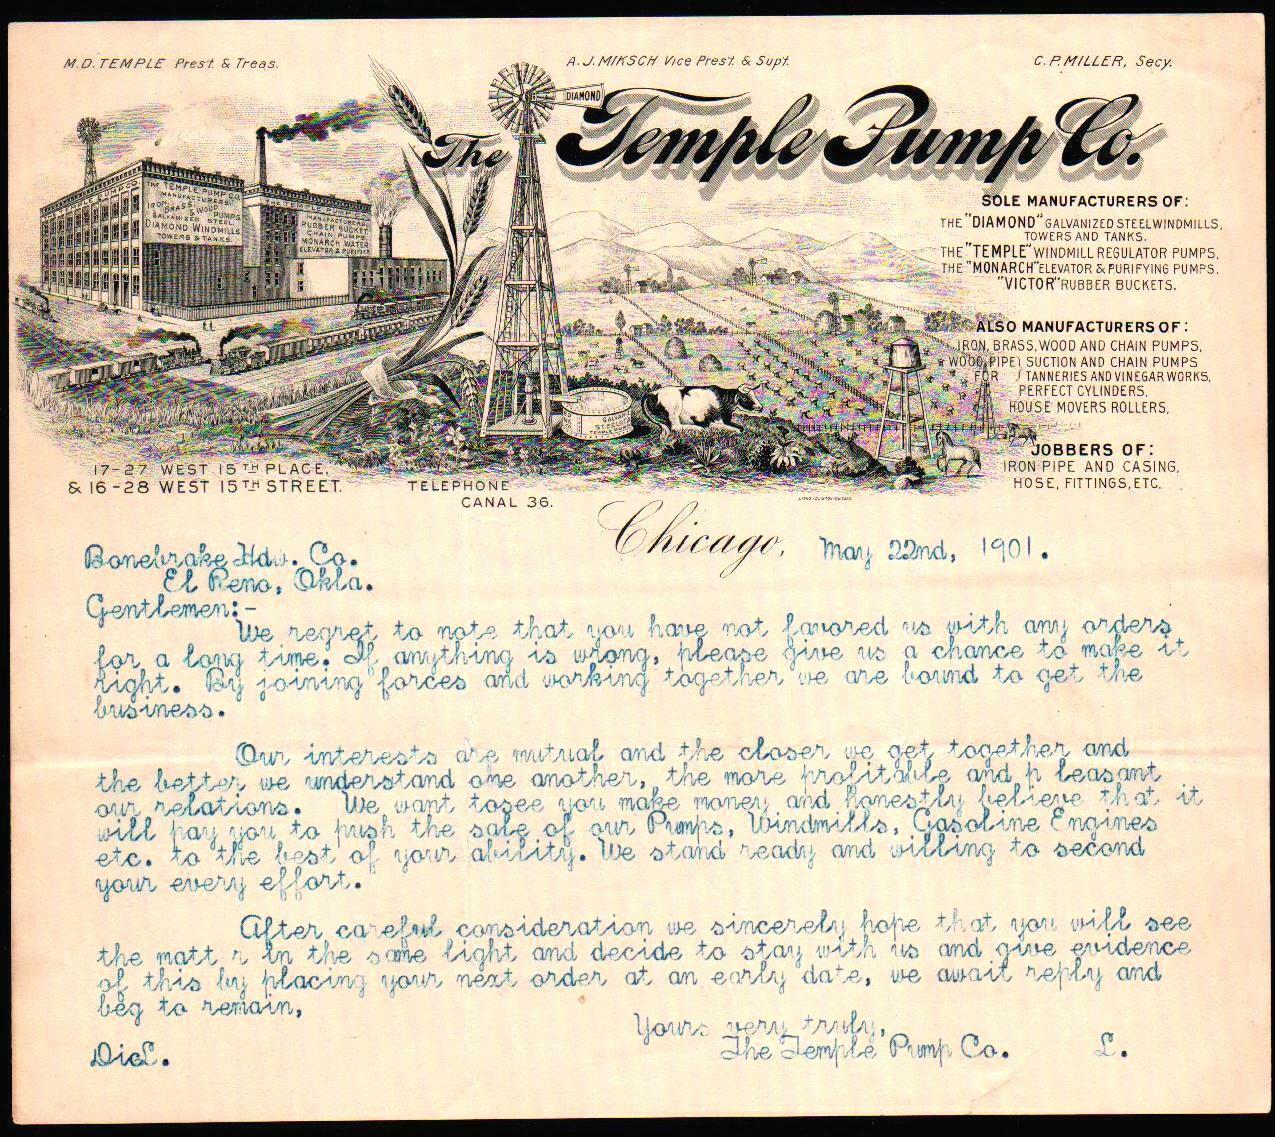 M.D. TEMPLE Pres't. & Treas.
A.J. MIKSCH Vice Pres't. & Sup't.
C.P. MILLER, Secy.
DIAMOND
The Temple Pump Co.
THE TEMPLE PUMP CO.
MANUFACTURERS
IRON, BRASS, & WOOD PUMPS
GALVANIZED STEEL
DIAMOND WINDMILLS,
TOWERS & TANKS.
MANUFACTURERS
RUBBER BUCKET
CHAIN PUMPS
MONARCH WATER
ELEVATOR & PURIFIER
SOLE MANUFACTURERS OF:
THE "DIAMOND" GALVANIZED STEEL WINDMILLS,
TOWERS AND TANKS.
THE "TEMPLE" WINDMILL REGULATOR PUMPS,
THE "MONARCH" ELEVATOR & PURIFYING PUMPS.
"VICTOR" RUBBER BUCKETS.
ALSO MANUFACTURERS OF:
IRON, BRASS, WOOD AND CHAIN PUMPS,
WOOD PIPE) SUCTION AND CHAIN PUMPS
FOR ) TANNERIES AND VINEGAR WORKS,
PERFECT CYLINDERS,
HOUSE MOVERS ROLLERS,
JOBBERS OF:
IRON PIPE AND CASING,
HOSE, FITTINGS, ETC.
17-27 WEST 15TH PLACE,
& 16-28 WEST 15TH STREET.
TELEPHONE
CANAL 36.
Chicago, May 22nd, 1901.
Bonebrake Hdw. Co.
El Reno, Okla.
Gentlemen:-
We regret to note that you have not favored us with any orders
for a long time. If anything is wrong, please give us a chance to make it
right. By joining forces and working together we are bound to get the
business.
Our interests are mutual and the closer we get together and
the better we understand one another, the more profitable and p leasant
our relations. We want tosee you make money and honestly believe that it
will pay you to push the sale of our Pumps, Windmills, Gasoline Engines
etc. to the best of your ability. We stand ready and willing to second
your every effort.
After careful consideration we sincerely hope that you will see
the matt r in the same light and decide to stay with us and give evidence
of this by placing your next order at an early date, we await reply and
beg to remain,
Yours very truly,
The Temple Pump Co. L.
DicL.